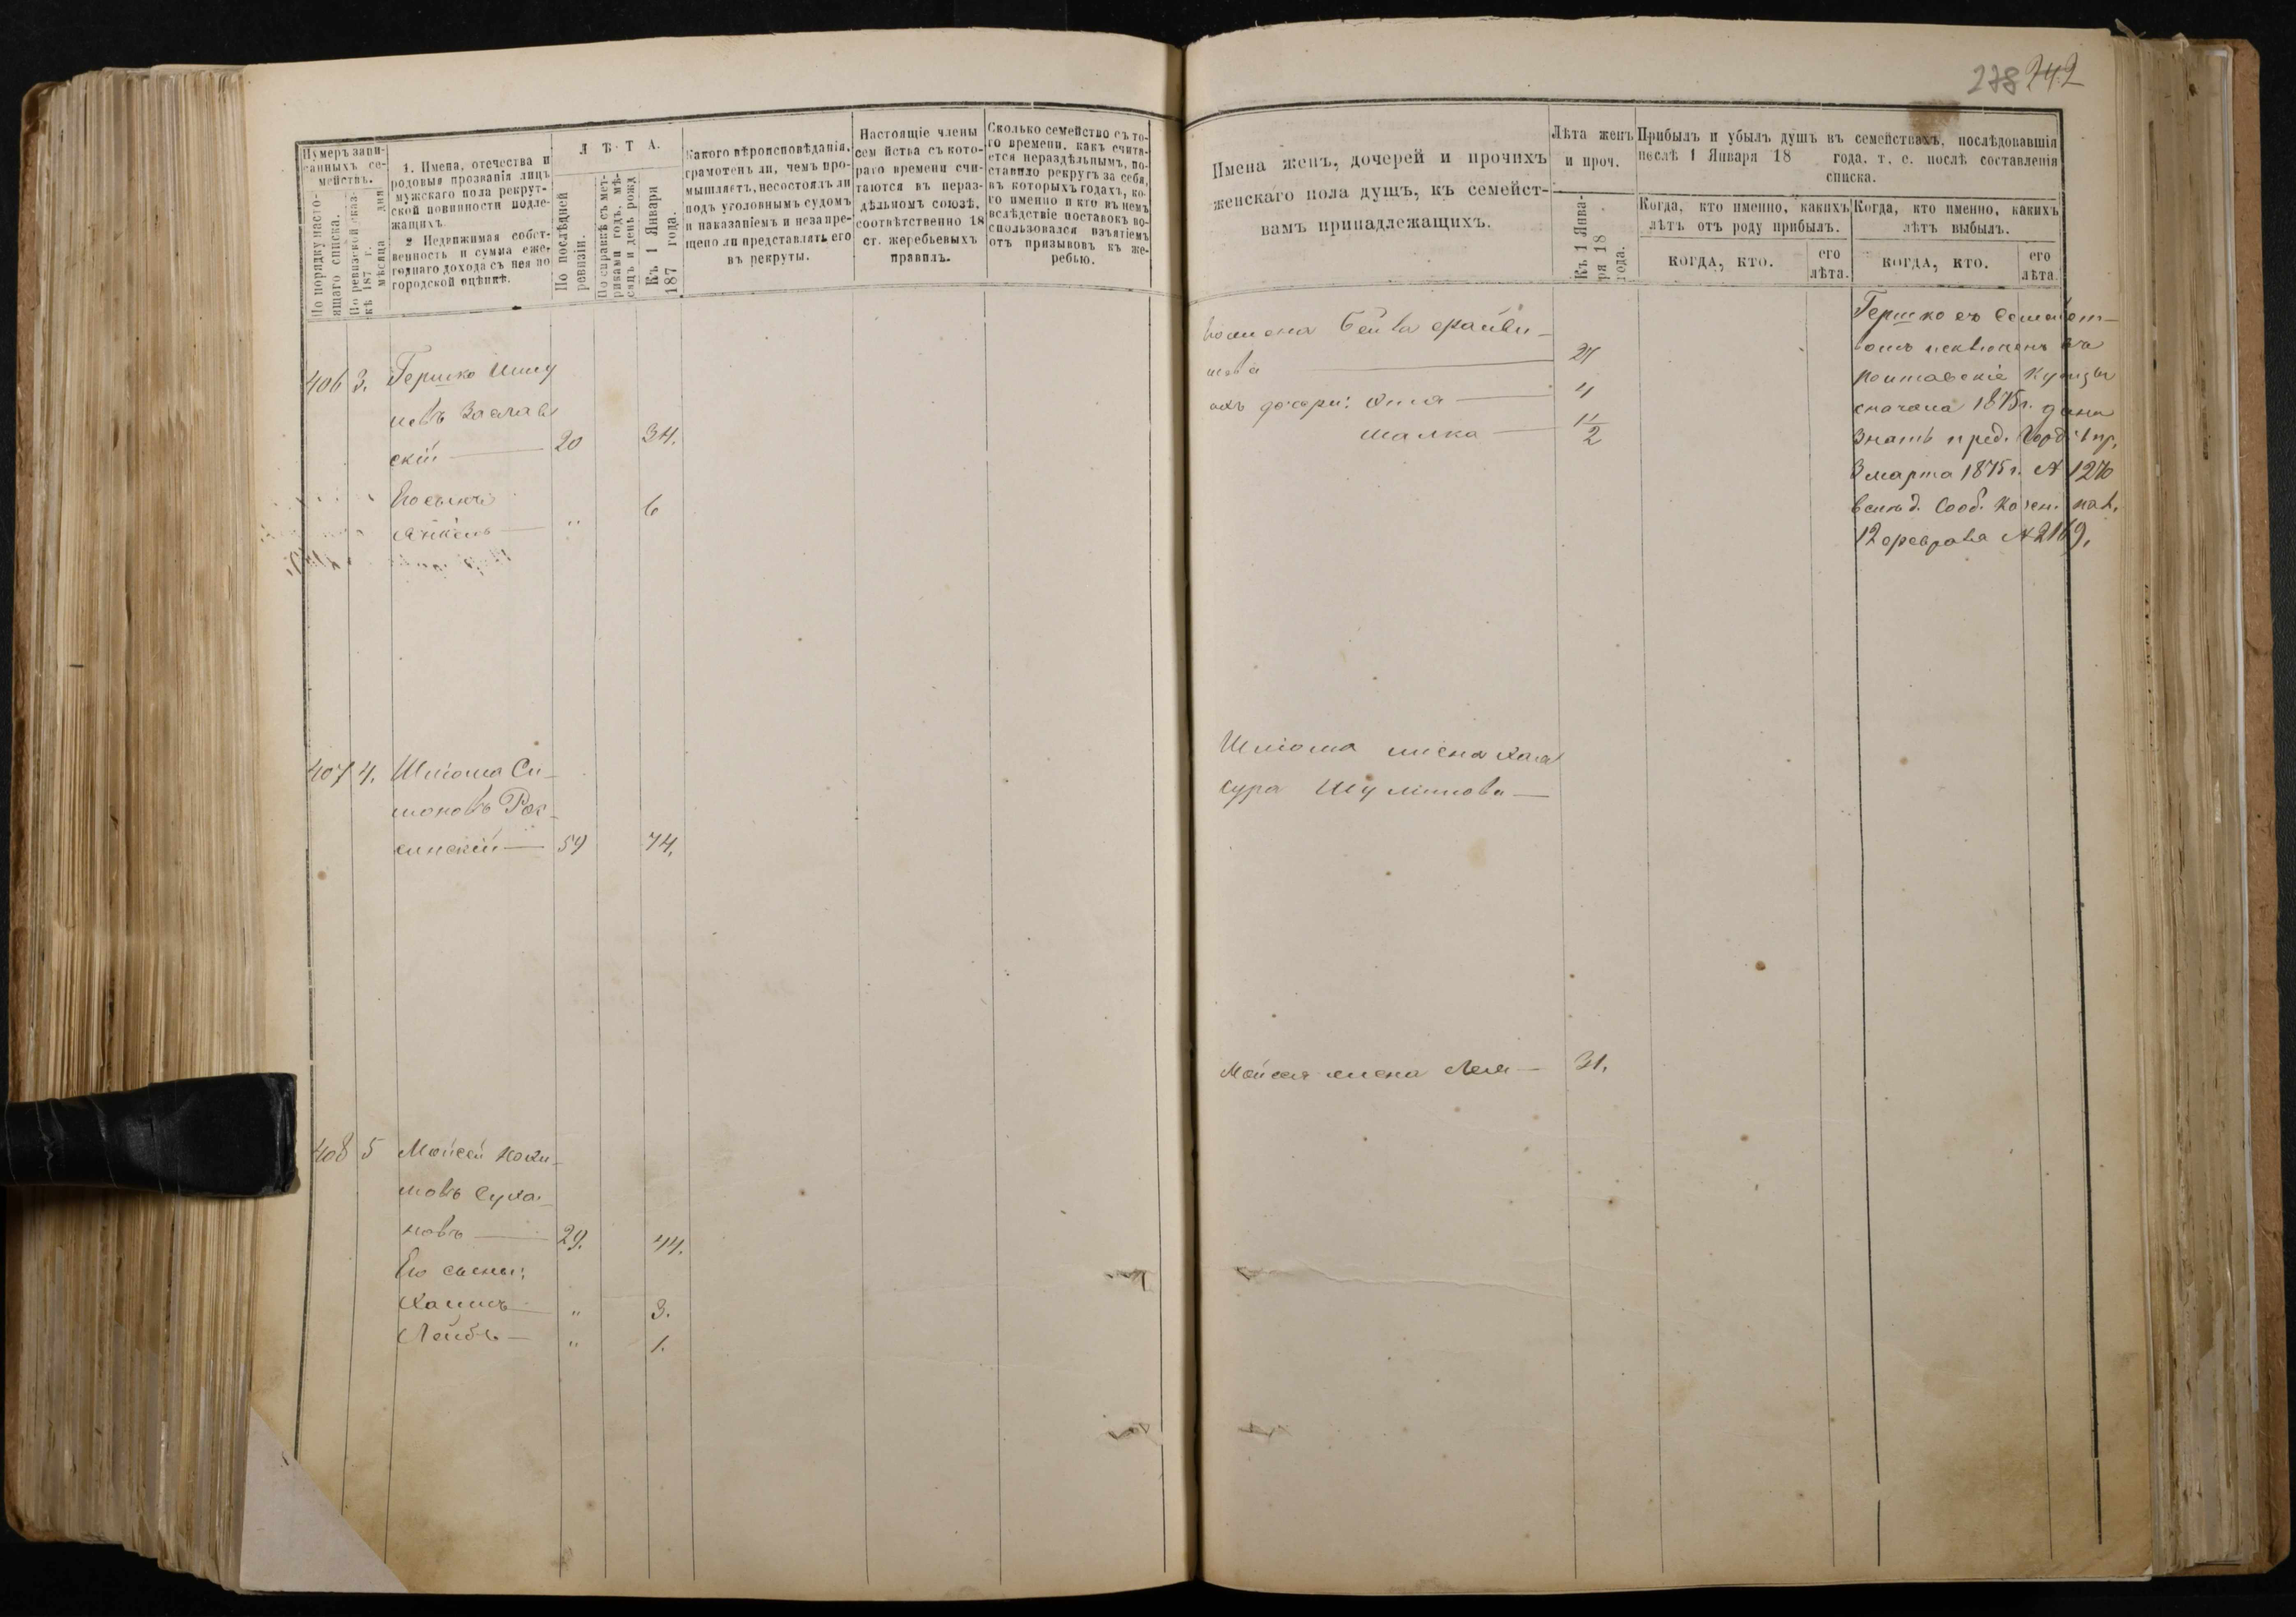 278 242
Нумеръ запи-
санныхъ се-
мействъ.
По порядку насто-
ящаго списка.
По ревизской сказ-
кѣ 187 г.
мѣсяца дня
1. Имена, отечества и
родовыя прозванія лицъ
мужскаго пола рекрут-
ской повинности подле-
жащихъ.
2 Недвижимая собст-
венность и сумма еже-
годнаго дохода съ нея по
городской оцѣнкѣ.
Л Ѣ Т А.
По послѣдней
ревизіи.
По справкѣ съ мет-
риками годъ, мѣ-
сяцъ и день рожд
Къ 1 Января
187 года.
Какого вѣроисповѣданія,
грамотенъ ли, чемъ про-
мышляетъ, несостоялъ ли
подъ уголовнымъ судомъ
и наказаніемъ и незапре-
щено ли представлять его
въ рекруты.
Настоящіе члены
сем йства съ кото-
раго времени счи-
таются въ нераз-
дѣльномъ союзѣ,
соотвѣтственно 18
ст. жеребьевыхъ
правилъ.
Сколько семейство съ то-
го времени, какъ счита-
ется нераздѣльнымъ, по-
ставило рекрутъ за себя,
въ которыхъ годахъ, ко-
го именно и кто въ немъ
вслѣдствіе поставокъ во-
спользовался изъятіемъ
отъ призывовъ къ же-
ребью.
406 3. Гершко
Заслав
скій 20 34.
Его сынъ
6
407 4. Шліома Си-
моновъ Рос-
синскій 59 74.
408 5 Мойсей
новъ 29. 44.
Его сыны:
Хаимъ " 3.
Лейбъ " 1.
Имена женъ, дочерей и прочихъ
женскаго пола душъ, къ семейст-
вамъ принадлежащихъ.
Лѣта женъ
и проч.
Къ 1 Янва-
ря 18
года.
Прибылъ и убылъ душъ въ семействахъ, послѣдовавшія
послѣ 1 Января 18 года, т. е. послѣ составленія
списка.
Когда, кто именно, какихъ
лѣтъ отъ роду прибылъ.
Когда, кто именно, какихъ
лѣтъ выбылъ.
когда, кто.
его
лѣта.
когда, кто.
его
лѣта.
жена Бейла
27
ихъ дочери: 4
Малка 1 1/2
Шліома жена Хая
Сура
Мойсея жена Лея 31.
Гершко съ семейст-
вомъ исключенъ въ
купцы
съ начала 1875 г. дано
знать пред.
3 марта 1875 г. № 1276
вслѣд. Сооб. Казен. пал.
12 февраля № 2169.